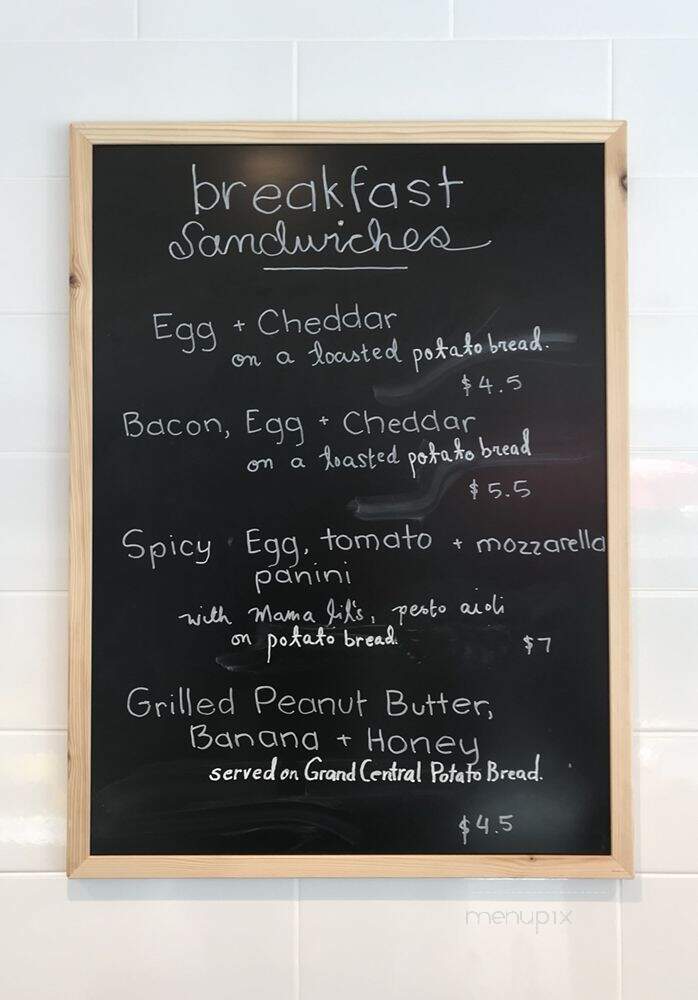 breakfast
Sandwiches
Egg + Cheddar
on a toasted potato bread.
$4.5
Bacon, Egg + Cheddar
on a toasted potato bread
$5.5
Spicy Egg, tomato + mozzarella
panini
with Mama Lil's, pesto aioli
on potato bread
$7
Grilled Peanut Butter,
Banana + Honey
served on Grand Central Potato Bread.
$4.5
menupix